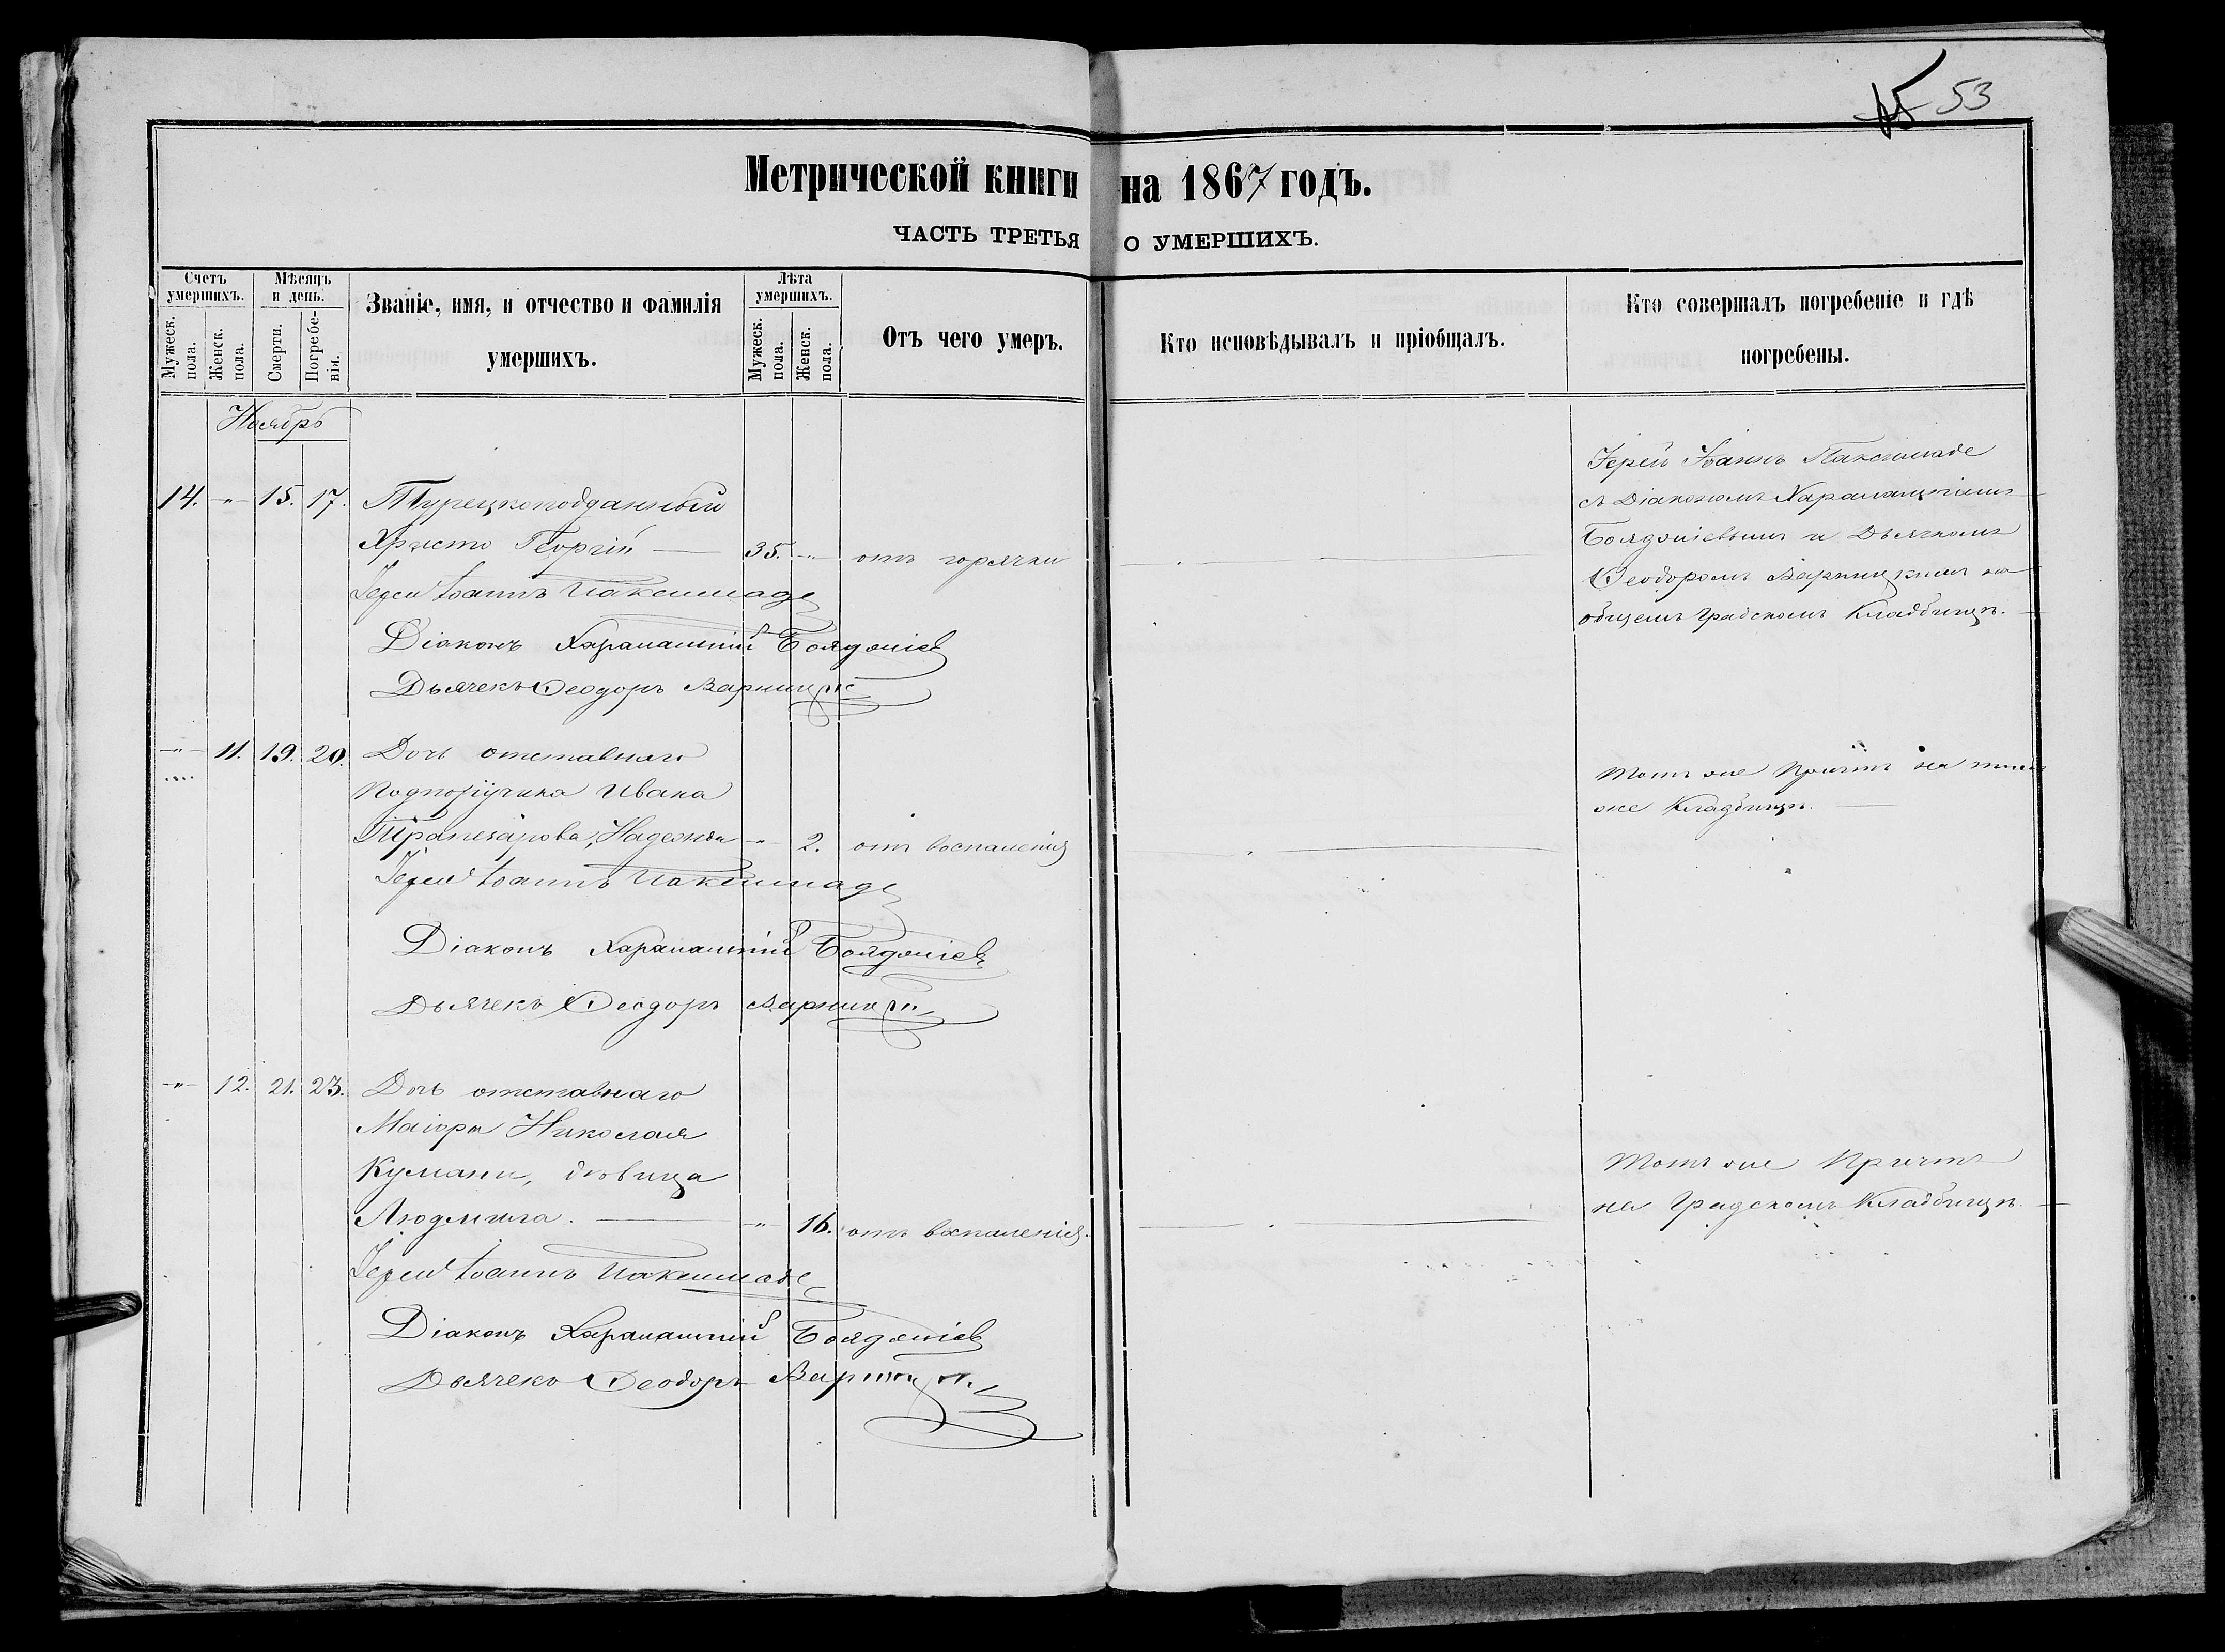 53
Метрической книги на 1867 годъ.
ЧАСТЬ ТРЕТЬЯ О УМЕРШИХЪ.
Счетъ умершихъ.
Мужеск. пола.
Женск. пола.
Мѣсяцъ и день.
Смерти.
Погребенія.
Званіе, имя, и отчество и фамилія умершихъ.
Лѣта умершихъ.
Мужеск. пола.
Женск. пола.
Отъ чего умеръ.
Кто исповѣдывалъ и пріобщалъ.
Кто совершалъ погребеніе и гдѣ погребены.
Ноябрь
14. -"- 15. 17. Турецкоподданный
Христо Георгій — 35. -"- отъ горячки
Іерей Іоаннъ Паксимаде
Діаконъ Харалампій Бояджіев
Дьячекъ Ѳеодоръ Варницкій
Іерей Іоаннъ Паксимаде
съ Діакономъ Харалампіемъ
Бояджіевымъ и Дьячкомъ
Ѳеодоромъ Варницкимъ на
общемъ Градскомъ Кладбищѣ.
-"- 11. 19. 20. Дочь отставнаго
Подпоручика Ивана
Надежда -"- 2. отъ воспаленія
Іерей Іоаннъ Паксимаде
Діаконъ Харалампій Бояджіевъ
Дьячекъ Ѳеодоръ Варницкій
Тотъ же Причтъ на томъ
же Кладбищѣ.
-"- 12. 21. 23. Дочь отставнаго
Маіора Николая
Кумани, дѣвица
Людмила. — -"- 16. отъ воспаленія.
Іерей Іоаннъ Паксимаде
Діаконъ Харалампій Бояджіев
Дьячекъ Ѳеодоръ Варницкій
Тотъ же Причтъ
на Градскомъ Кладбищѣ.